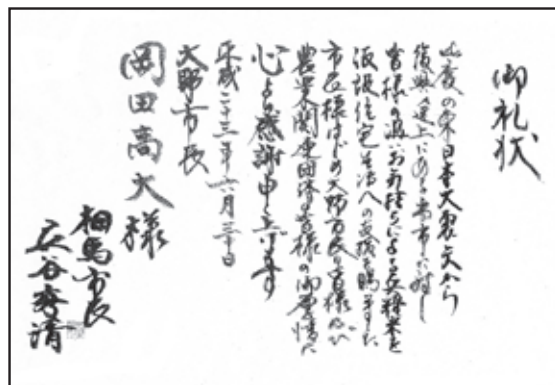 御礼状
この度の東日本大震災から
復興途上にある当市に対し
皆様の温いお気持ちによる
仮設住宅生活への支援を賜りました
市長様はじめ大野市民の皆様並び
農業関連団体の皆様の御厚情に
心より感謝申し上げます
平成二十三年六月三十日
大野市長
岡田高大様
相馬市長
立谷秀清